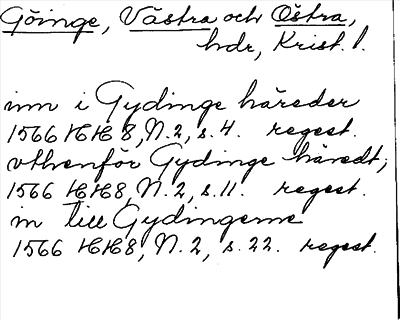 Göinge, Västra och Östra,
hdr, Krist. l.
inn i Gydinge häreder
1566 HH 8, N. 2, s. 4. regest.
vthenför Gydinge häredt,
1566 HH8, N. 2, s. 11. regest.
in till Gydingerne
1566 HH8, N. 2, s. 22. regest.